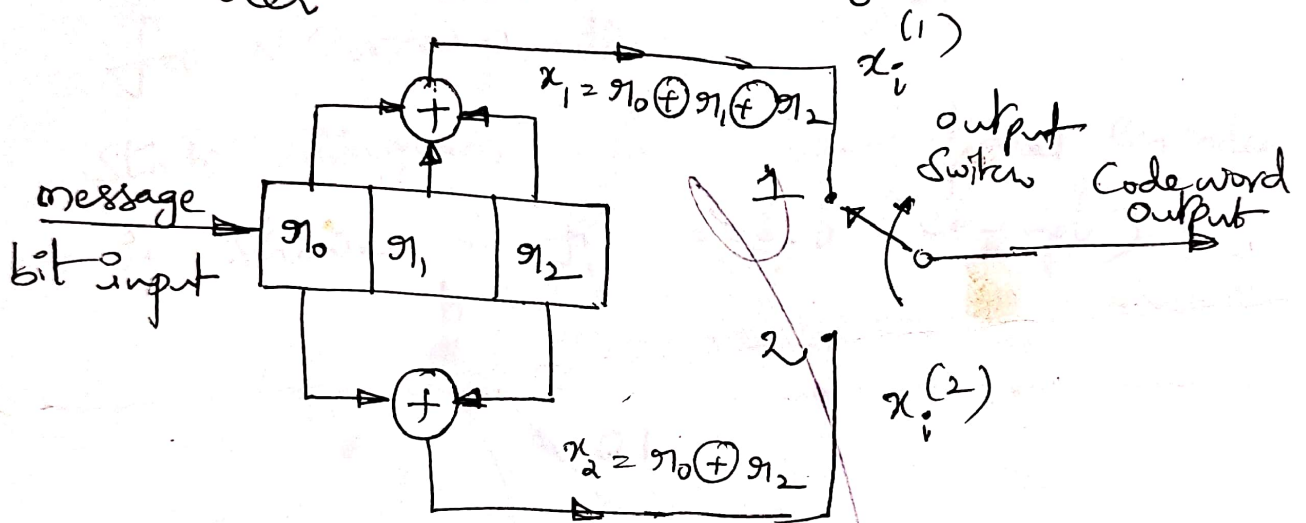 x_i^(1)
x_1 = r_0 ⊕ r_1 ⊕ r_2
+
output
Switch
Codeword
output
1
message
bit input
r_0 r_1 r_2
2
x_i^(2)
+
x_2 = r_0 ⊕ r_2